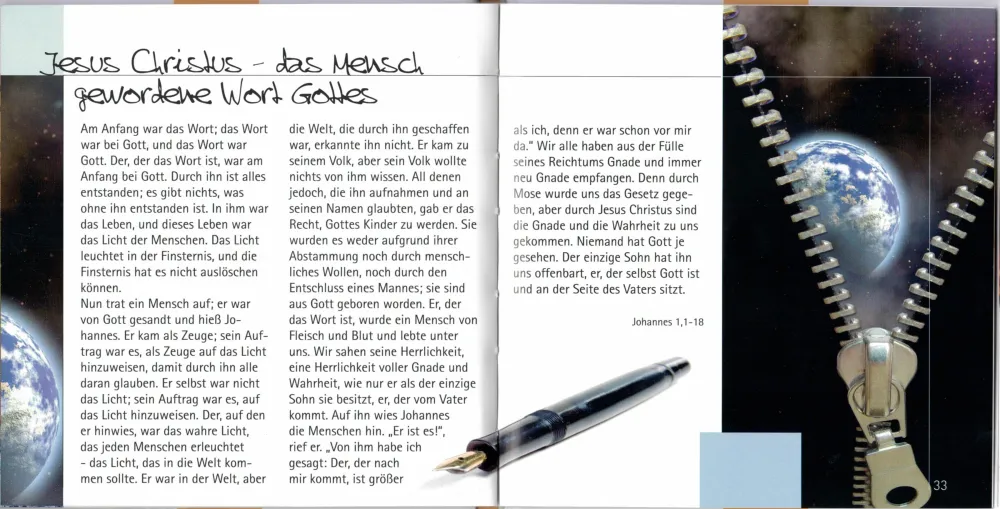 Jesus Christus - das Mensch
gewordene Wort Gottes
Am Anfang war das Wort; das Wort
war bei Gott, und das Wort war
Gott. Der, der das Wort ist, war am
Anfang bei Gott. Durch ihn ist alles
entstanden; es gibt nichts, was
ohne ihn entstanden ist. In ihm war
das Leben, und dieses Leben war
das Licht der Menschen. Das Licht
leuchtet in der Finsternis, und die
Finsternis hat es nicht auslöschen
können.
Nun trat ein Mensch auf; er war
von Gott gesandt und hieß Jo-
hannes. Er kam als Zeuge; sein Auf-
trag war es, als Zeuge auf das Licht
hinzuweisen, damit durch ihn alle
daran glauben. Er selbst war nicht
das Licht; sein Auftrag war es, auf
das Licht hinzuweisen. Der, auf den
er hinwies, war das wahre Licht,
das jeden Menschen erleuchtet
– das Licht, das in die Welt kom-
men sollte. Er war in der Welt, aber
die Welt, die durch ihn geschaffen
war, erkannte ihn nicht. Er kam zu
seinem Volk, aber sein Volk wollte
nichts von ihm wissen. All denen
jedoch, die ihn aufnahmen und an
seinen Namen glaubten, gab er das
Recht, Gottes Kinder zu werden. Sie
wurden es weder aufgrund ihrer
Abstammung noch durch mensch-
liches Wollen, noch durch den
Entschluss eines Mannes; sie sind
aus Gott geboren worden. Er, der
das Wort ist, wurde ein Mensch von
Fleisch und Blut und lebte unter
uns. Wir sahen seine Herrlichkeit,
eine Herrlichkeit voller Gnade und
Wahrheit, wie nur er als der einzige
Sohn sie besitzt, er, der vom Vater
kommt. Auf ihn wies Johannes
die Menschen hin. „Er ist es!“,
rief er. „Von ihm habe ich
gesagt: Der, der nach
mir kommt, ist größer
als ich, denn er war schon vor mir
da.“ Wir alle haben aus der Fülle
seines Reichtums Gnade und immer
neu Gnade empfangen. Denn durch
Mose wurde uns das Gesetz gege-
ben, aber durch Jesus Christus sind
die Gnade und die Wahrheit zu uns
gekommen. Niemand hat Gott je
gesehen. Der einzige Sohn hat ihn
uns offenbart, er, der selbst Gott ist
und an der Seite des Vaters sitzt.
Johannes 1,1-18
33